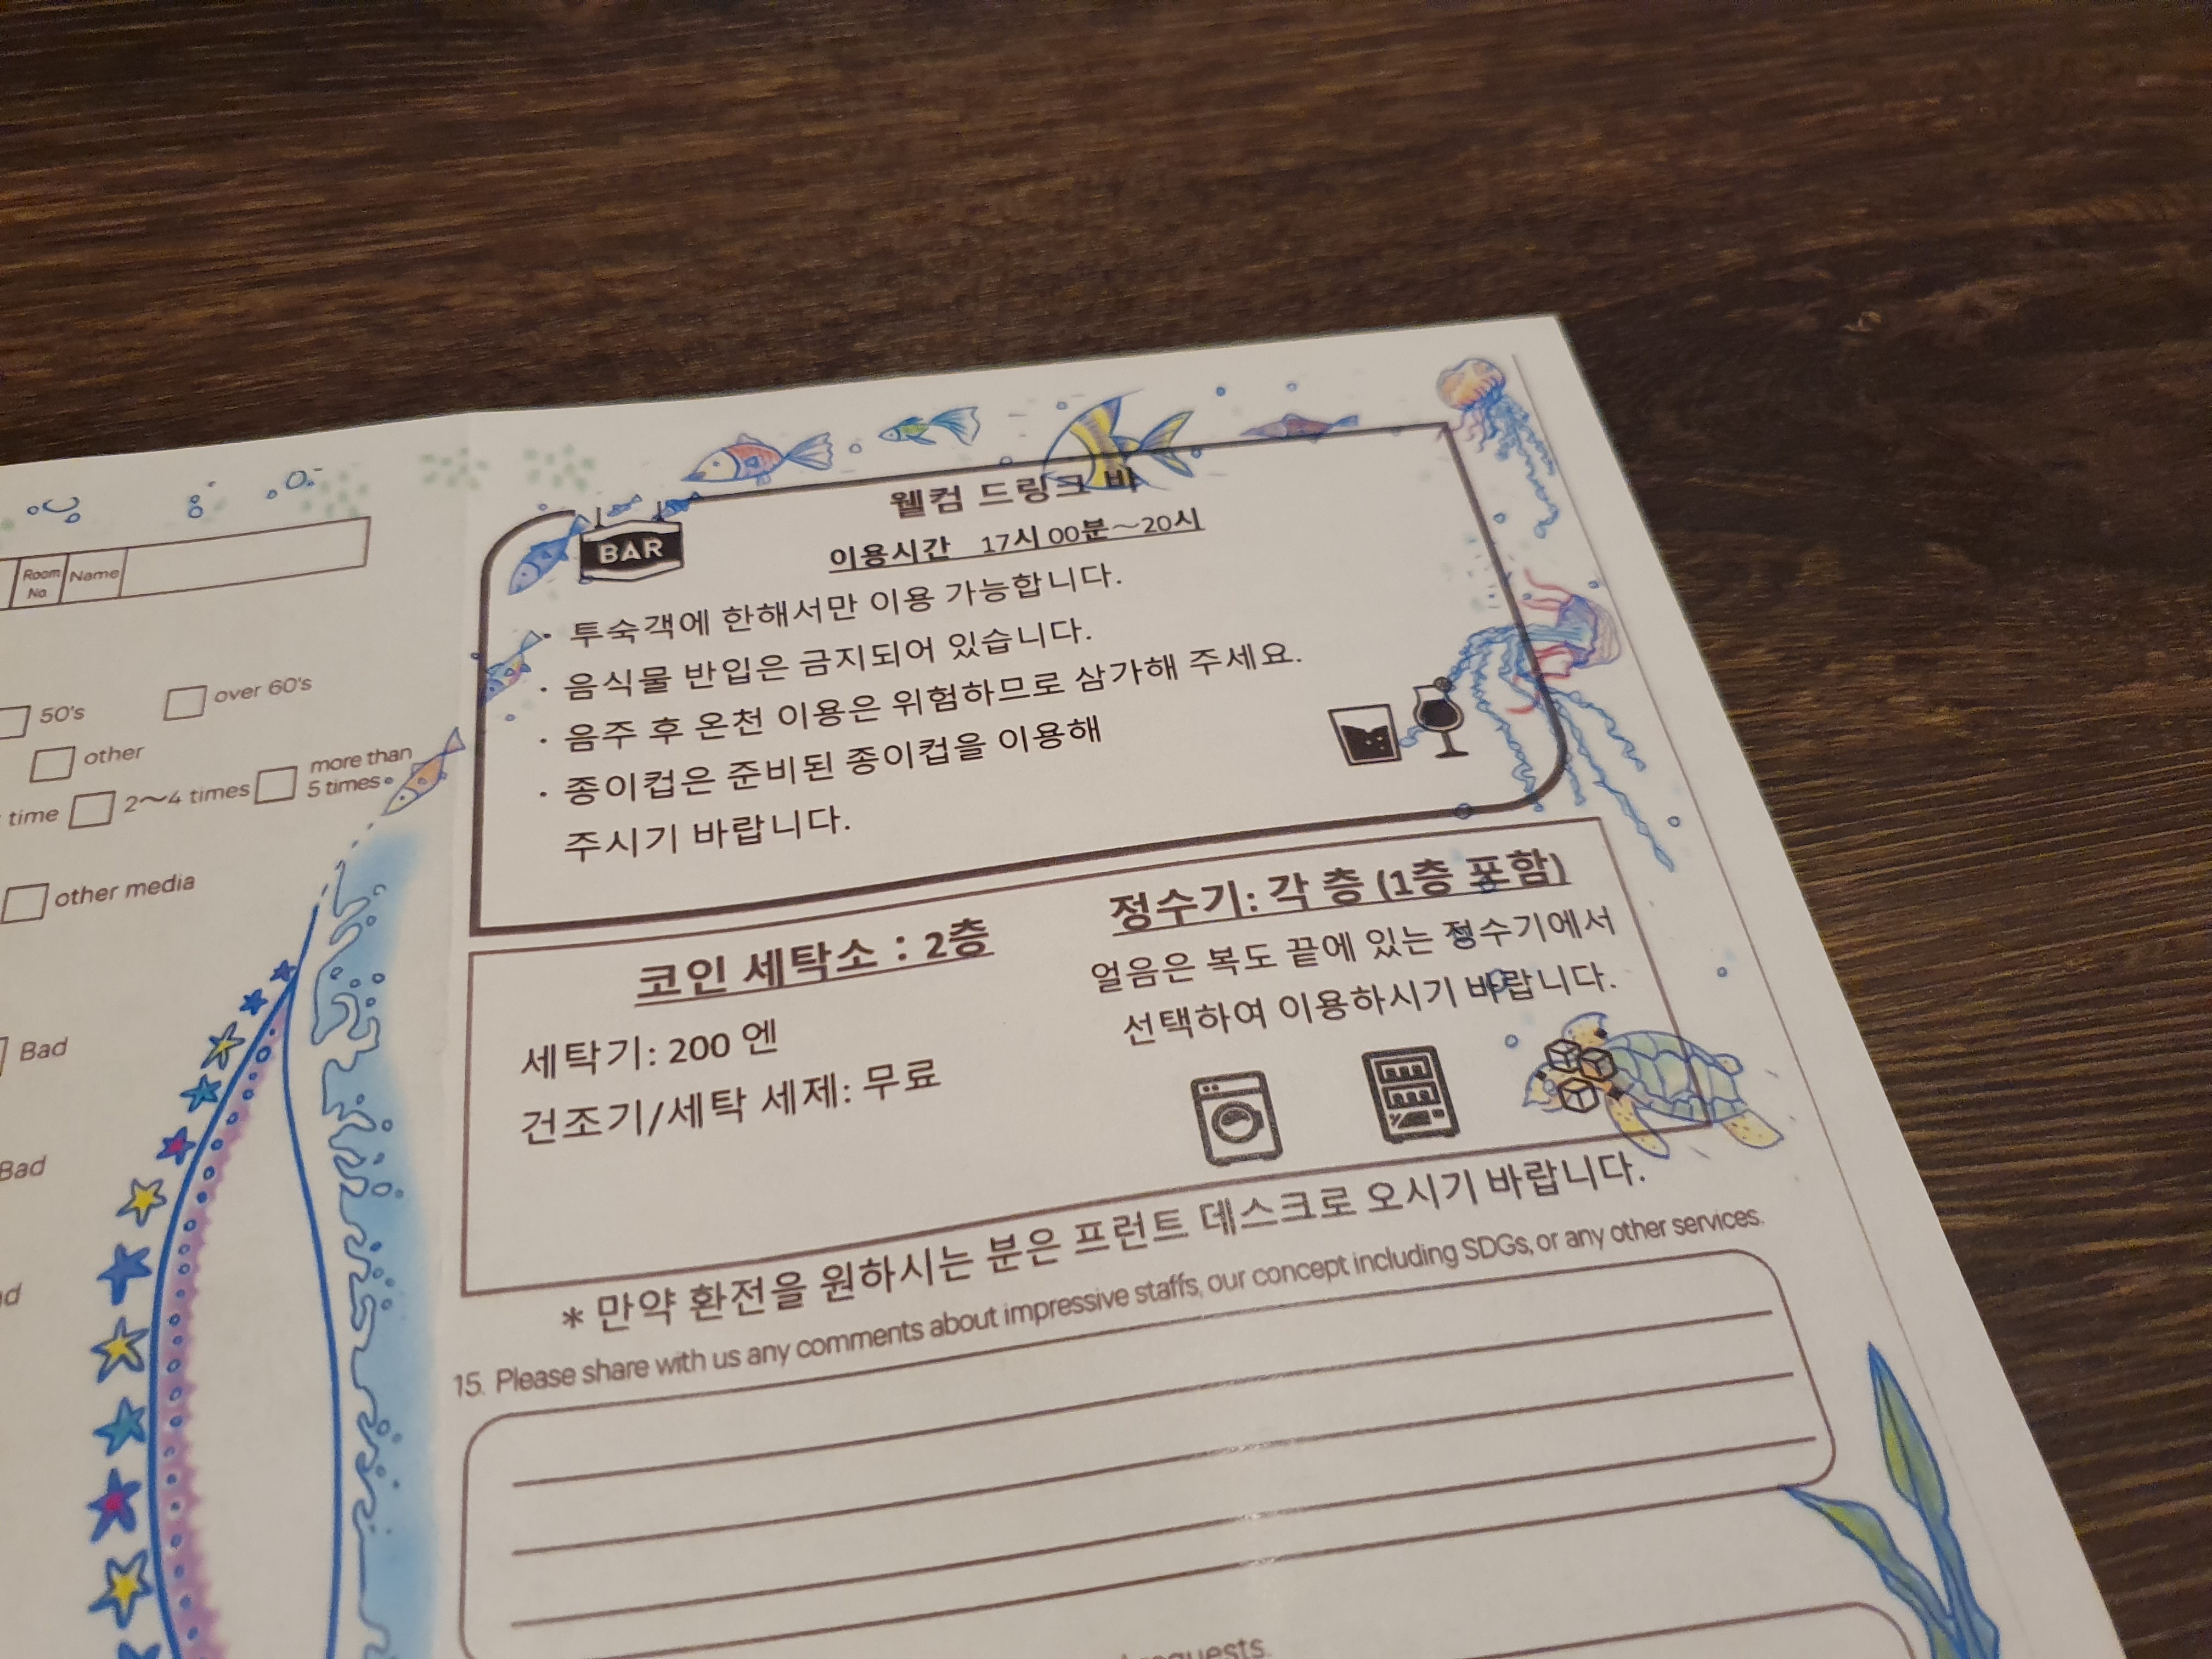 Room No. Name
50's
over 60's
other
time
2～4 times
more than 5 times
other media
Bad
Bad
BAR
웰컴 드링크 바
이용시간 17시 00분～20시
· 투숙객에 한해서만 이용 가능합니다.
· 음식물 반입은 금지되어 있습니다.
· 음주 후 온천 이용은 위험하므로 삼가해 주세요.
· 종이컵은 준비된 종이컵을 이용해
주시기 바랍니다.
코인 세탁소 : 2층
세탁기: 200 엔
건조기/세탁 세제: 무료
정수기: 각 층 (1층 포함)
얼음은 복도 끝에 있는 정수기에서
선택하여 이용하시기 바랍니다.
* 만약 환전을 원하시는 분은 프런트 데스크로 오시기 바랍니다.
15. Please share with us any comments about impressive staffs, our concept including SDGs, or any other services.